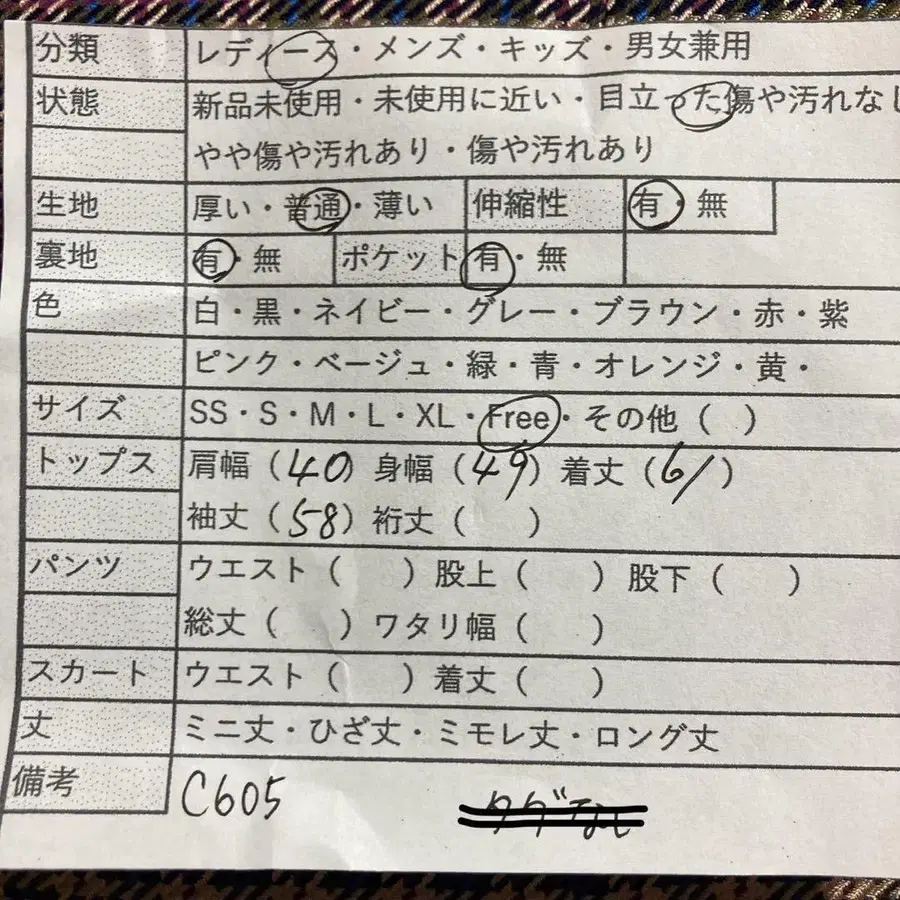 分類 レディース・メンズ・キッズ・男女兼用
状態 新品未使用・未使用に近い・目立った傷や汚れなし
やや傷や汚れあり・傷や汚れあり
生地 厚い・普通・薄い 伸縮性 有・無
裏地 有・無 ポケット 有・無
色 白・黒・ネイビー・グレー・ブラウン・赤・紫
ピンク・ベージュ・緑・青・オレンジ・黄・
サイズ SS・S・M・L・XL・Free・その他（ ）
トップス 肩幅（40）身幅（49）着丈（61）
袖丈（58）裄丈（ ）
パンツ ウエスト（ ）股上（ ）股下（ ）
総丈（ ）ワタリ幅（ ）
スカート ウエスト（ ）着丈（ ）
丈 ミニ丈・ひざ丈・ミモレ丈・ロング丈
備考 C605 タグなし